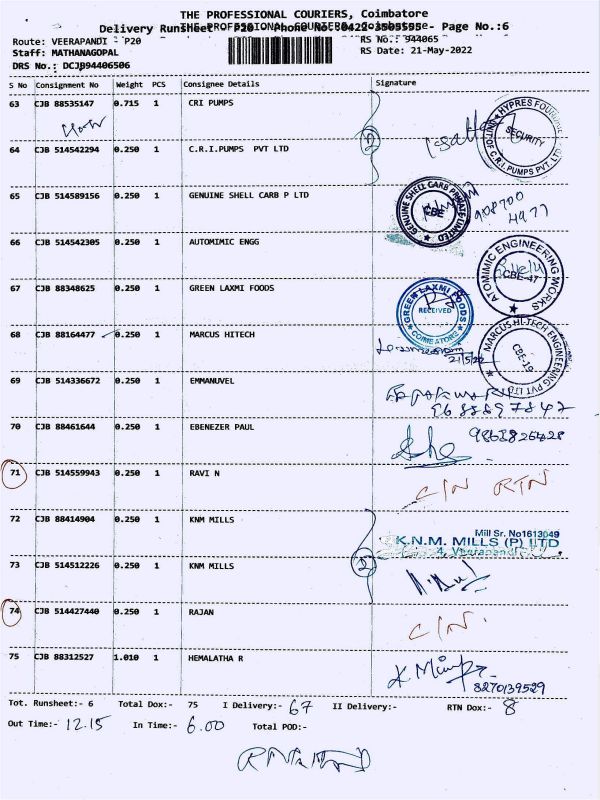 THE PROFESSIONAL COURIERS, Coimbatore
Delivery Runsheet - P20 - Page No.:6
Route: VEERAPANDI - P20
RS No.: 944065
Staff: MATHANAGOPAL
RS Date: 21-May-2022
DRS No.: DCJB94406506
S No Consignment No Weight PCS Consignee Details Signature
63 CJB 88535147 0.715 1 CRI PUMPS
HYPRES FOUNDRIES UNIT OF C.R.I.PUMPS PVT. LTD SECURITY
2
64 CJB 514542294 0.250 1 C.R.I.PUMPS PVT LTD
65 CJB 514589156 0.250 1 GENUINE SHELL CARB P LTD
GENUINE SHELL CARB PRIVATE LIMITED CBE
908700
4977
66 CJB 514542305 0.250 1 AUTOMIMIC ENGG
ATOMIMIC ENGINEERING WORKS CBE-47
67 CJB 88348625 0.250 1 GREEN LAXMI FOODS
GREEN LAXMI FOODS RECEIVED COIMBATORE
68 CJB 88164477 0.250 1 MARCUS HITECH
21/5/22
MARCUS HI-TECH ENGINEERING PVT LTD CBE-19
69 CJB 514336672 0.250 1 EMMANUVEL
9688897847
70 CJB 88461644 0.250 1 EBENEZER PAUL
9863826428
71 CJB 514559943 0.250 1 RAVI N
C/N RTN
72 CJB 88414904 0.250 1 KNM MILLS
Mill Sr. No1613049
K.N.M. MILLS (P) LTD
4, Veerapandi
2
73 CJB 514512226 0.250 1 KNM MILLS
74 CJB 514427440 0.250 1 RAJAN
C/N.
75 CJB 88312527 1.010 1 HEMALATHA R
8270139529
Tot. Runsheet:- 6 Total Dox:- 75 I Delivery:- 67 II Delivery:- RTN Dox:- 8
Out Time:- 12.15 In Time:- 6.00 Total POD:-